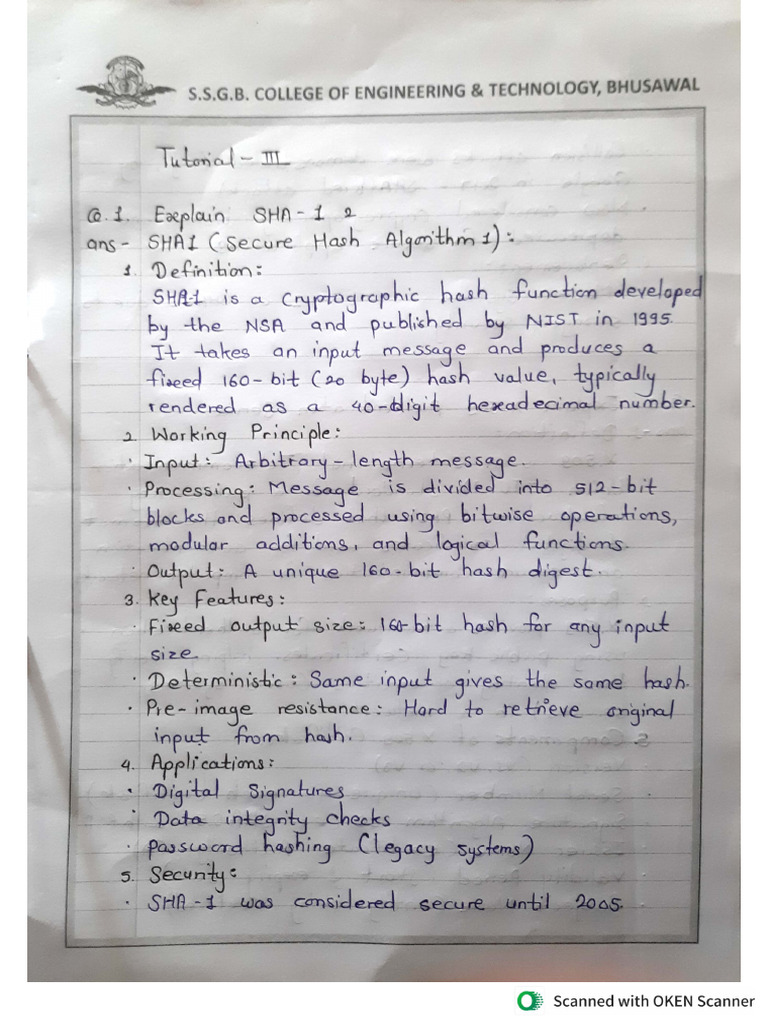 S.S.G.B. COLLEGE OF ENGINEERING & TECHNOLOGY, BHUSAWAL
Tutorial - III
Q.1. Explain SHA - 1 ?
ans - SHA1 (Secure Hash Algorithm 1):
1. Definition:
SHA-1 is a cryptographic hash function developed
by the NSA and published by NIST in 1995.
It takes an input message and produces a
fixed 160-bit (20 byte) hash value, typically
rendered as a 40-digit hexadecimal number.
2. Working Principle:
· Input: Arbitrary-length message.
· Processing: Message is divided into 512-bit
blocks and processed using bitwise operations,
modular additions, and logical functions.
· Output: A unique 160-bit hash digest.
3. Key Features:
· Fixed output size: 160-bit hash for any input
size.
· Deterministic: Same input gives the same hash.
· Pre-image resistance: Hard to retrieve original
input from hash.
4. Applications:
· Digital Signatures
· Data integrity checks
· password hashing (legacy systems)
5. Security:
· SHA-1 was considered secure until 2005.
Scanned with OKEN Scanner